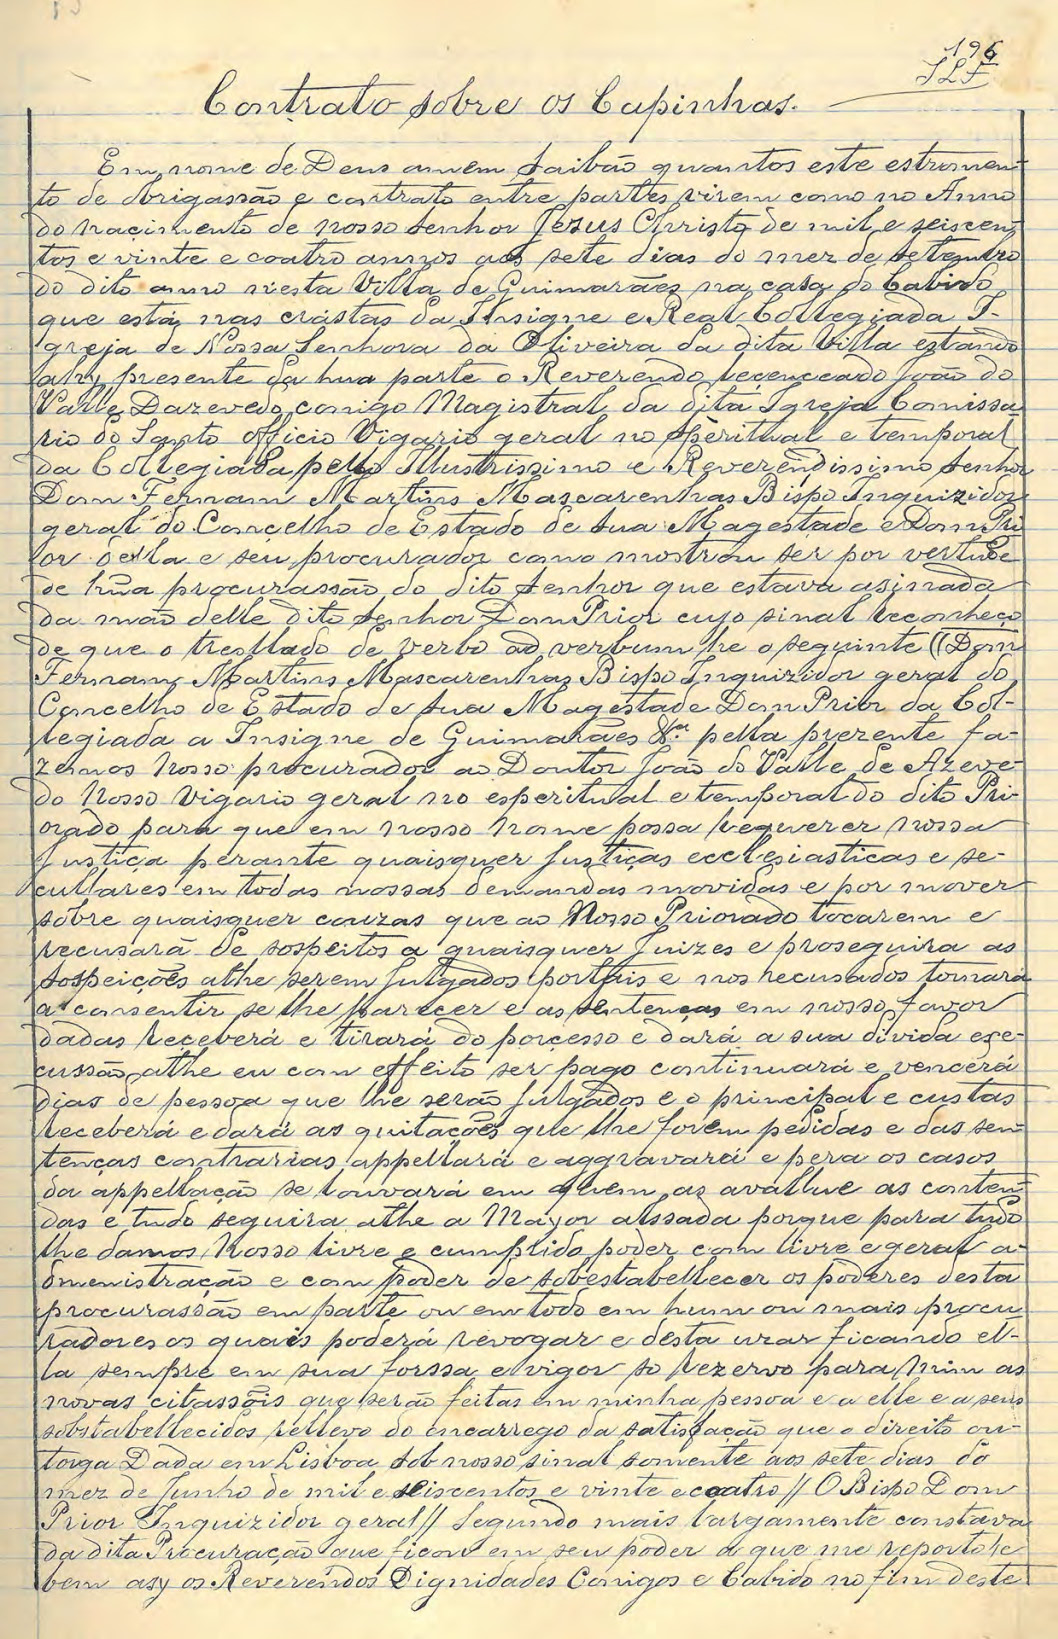 196
SLF
Contrato sobre os Capinhas.
Em nome de Deus amem saibão quantos este estromen-
to de obrigassão e contrato entre partes virem como no Anno
do naçimento de nosso senhor Jesus Christo de mil e seiscen-
tos e vinte e coatro annos aos sete dias do mez de setembro
do dito anno nesta Villa de Guimarães na casa do Cabido
que está nas crastas da Insigne e Real Collegiada I-
greja de Nossa Senhora da Oliveira da dita Villa estando
ahy presente da hua parte o Reverendo leçenceado João do
Valle Dazevedo conigo Magistral da dita Igreja Comissa
rio do Santo officio Vigario geral no spèritual e temporal
da Collegiada pello Illustrissimo e Reverendissimo senhor
Dom Fernam Martins Mascarenhas Bispo Inquizidor
geral do Conçelho de Estado de sua Magestade e Dom Pri
or della e seu procurador como mostrou ser por vertude
de hũa procurassão do dito senhor que estava asinada
da mão delle dito senhor Dom Prior cujo sinal reconheço
de que o tresllado de verbo ad verbum he o seguinte ((Dom
Fernam Martins Mascarenhas Bispo Inquizidor geral do
Concelho de Estado de sua Magestade Dom Prior da Col-
legiada a Insigne de Guimarães &.ª pella prezente fa-
zemos Nosso procurador ao Doutor João do Valle de Azeve-
do Nosso Vigario geral no esperitual e temporal do dito Pri-
orado para que em nosso Nome possa requerer nossa
Justiça perante quaisquer Justiças ecclesiasticas e se-
cullares em todas nossas demandas movidas e por mover
sobre quaisquer couzas que ao Nosso Priorado tocarem e
recusará de sospeitos a quaisquer Juizes e proseguira as
sospeições athe serem Julgados portais e nos recusados tornará
a consentir se lhe parecer e as sentenças em nosso favor
dadas receberá e tirará do porçesso e dará a sua divida exe-
cussão athe eu com effeito ser pago continuará e vencerá
dias de pessoa que lhe serão Julgados e o principal e custas
receberá e dará as quitações que lhe forem pedidas e das sen-
tenças contrarias appellará e aggravará e pera os casos
da appellação se louvará em quem as avallue as conten-
das e tudo seguira athe a Mayor alssada porque para tudo
lhe damos Nosso livre e cumprido poder com livre e geral a-
dmenistração e com poder de sobestabellecer os poderes desta
procurassão em parte ou em todo em hum ou mais procu
radores os quais poderá revogar e desta uzar ficando el-
la sempre em sua forssa e vigor so rezervo para mim as
novas citassõis que serão feitas em minha pessoa e a elle e a seus
sobstabellecidos rellevo do encarrego da satisfação que o direito ou-
torga Dada em Lisboa sob nosso sinal somente aos sete dias do
mez de Junho de mil e seiscentos e vinte e coatro // O Bispo Dom
Prior Inquizidor geral // Segundo mais largamente constava
da dita Procuração que ficou em seu poder a que me reporto/e
bem asy os Reverendos Dignidades Conigos e Cabido no fim deste